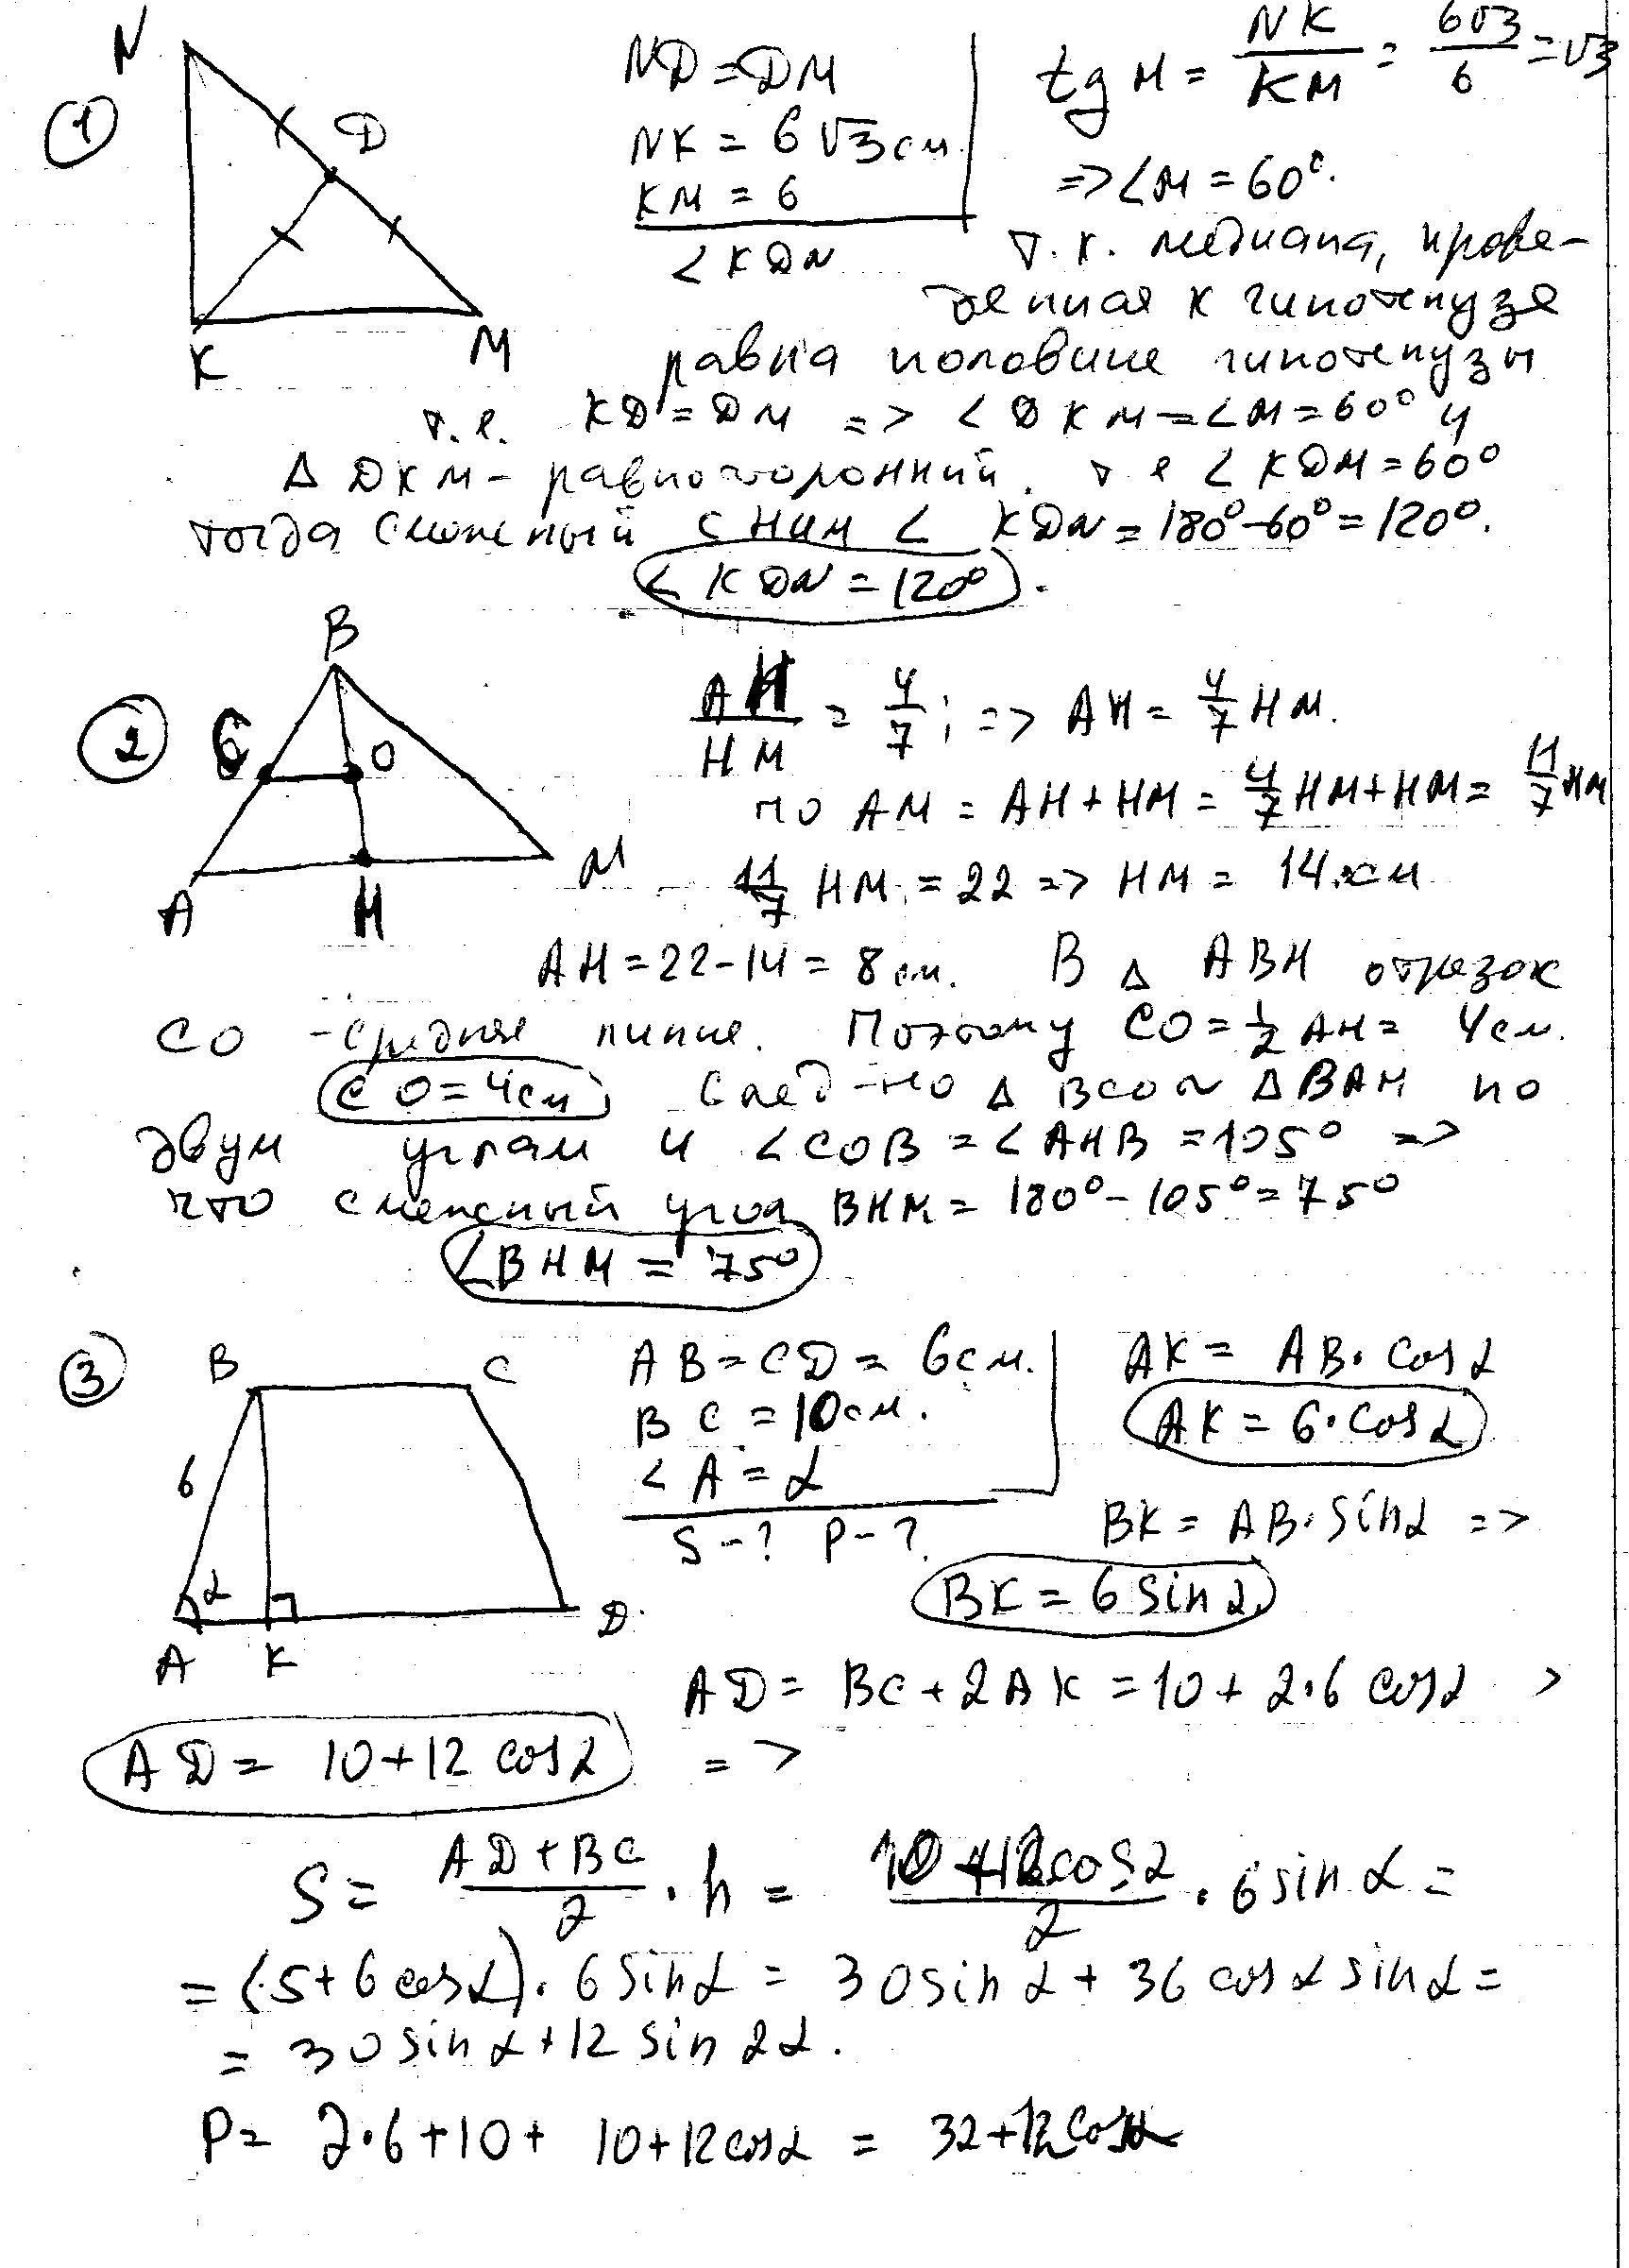 1
N
D
K
M
ND = DM
NK = 6√3 см.
KM = 6
∠KDN
tg M = NK/KM = 6√3/6 = √3
=> ∠M = 60°.
т.к. медиана, прове-
денная к гипотенузе
равна половине гипотенузы
т.е. KD = DM => ∠DKM = ∠M = 60° и
Δ DKM – равносторонний. т.е ∠KDM = 60°
тогда смежный с ним ∠ KDN = 180° – 60° = 120°.
∠KDN = 120°.
2
B
C
O
A
H
M
AH/HM = 4/7; => AH = 4/7 HM.
но AM = AH + HM = 4/7 HM + HM = 11/7 HM
11/7 HM = 22 => HM = 14 см
AH = 22 – 14 = 8 см. В Δ ABH отрезок
CO – средняя линия. Поэтому CO = 1/2 AH = 4 см.
CO = 4см След-но Δ BCO ~ Δ BAH по
двум углам и ∠COB = ∠AHB = 105° =>
что смежный угол BHM = 180° – 105° = 75°
∠BHM = 75°
3
B
C
6
α
A
K
D
AB = CD = 6см.
BC = 10см.
∠A = α
S – ? P – ?
AK = AB · cos α
AK = 6 · cos α
BK = AB · sin α =>
BK = 6 sin α
AD = BC + 2AK = 10 + 2·6 cos α >
AD = 10 + 12 cos α =>
S = (AD + BC)/2 · h = (10 + 12cos α)/2 · 6 sin α =
= (5 + 6 cos α) · 6 sin α = 30 sin α + 36 cos α sin α =
= 30 sin α + 12 sin 2α.
P = 2·6 + 10 + 10 + 12 cos α = 32 + 12 cos α